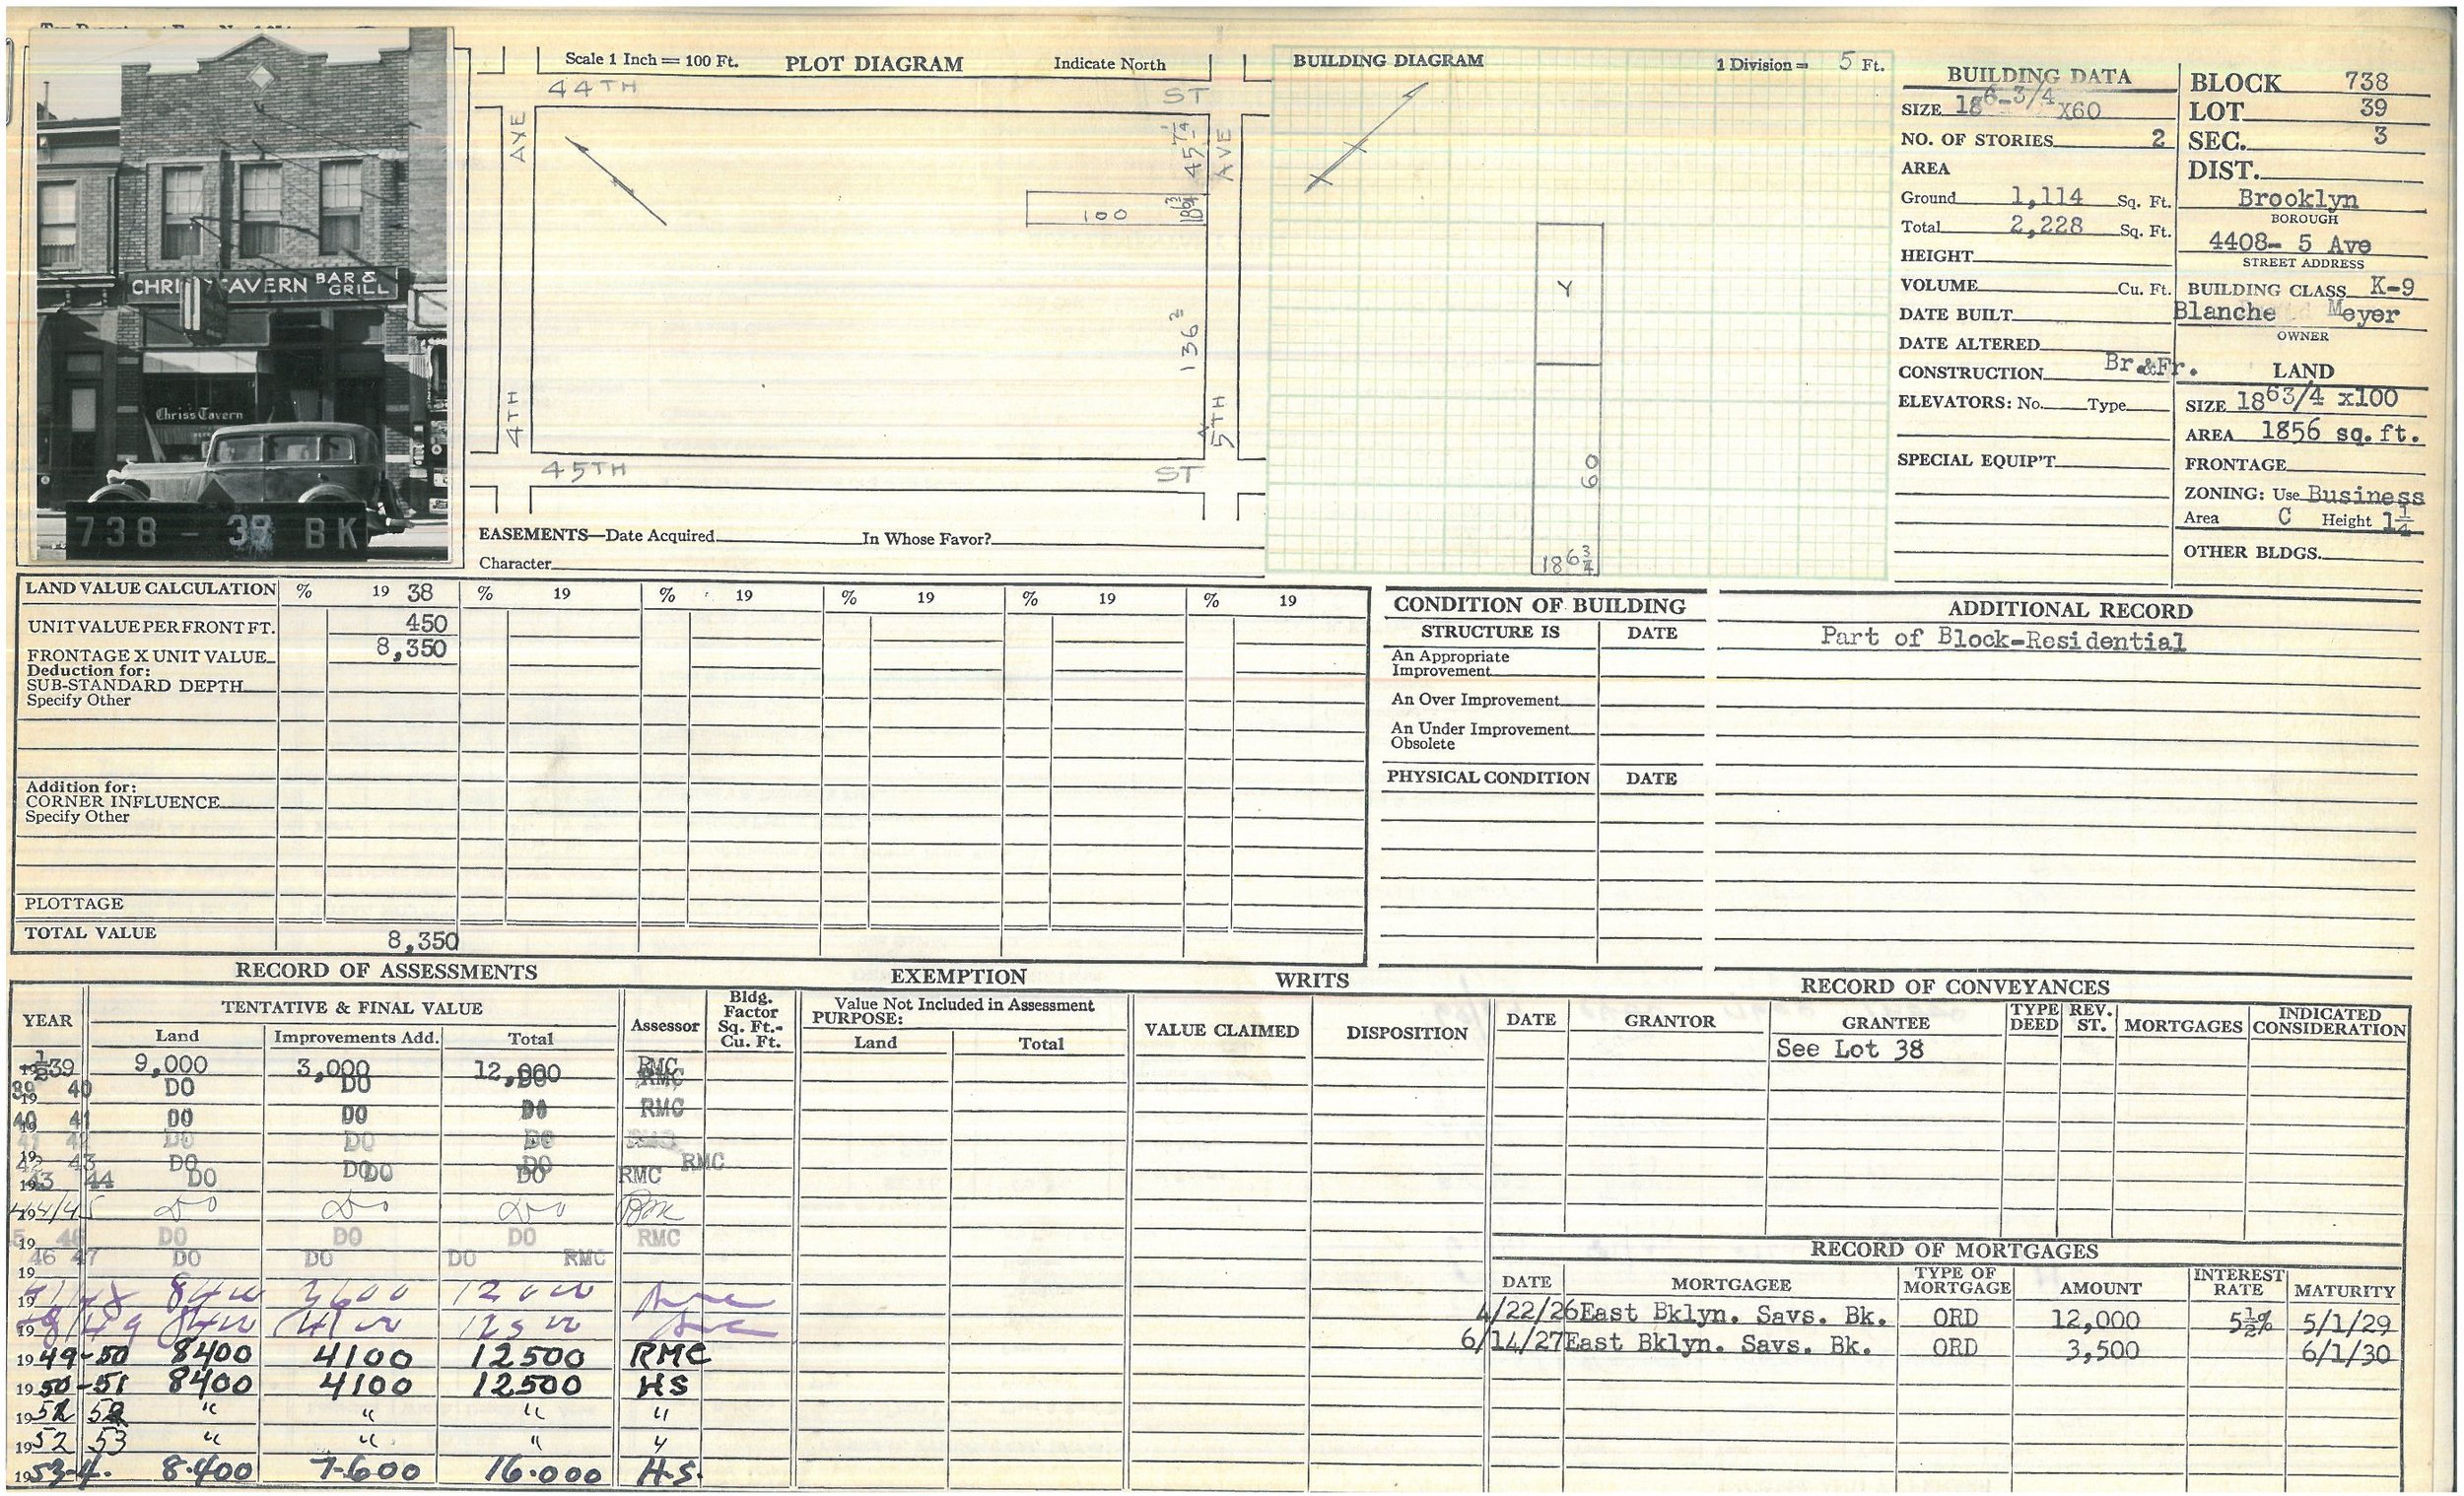 CHRI TAVERN BAR & GRILL
Chriss Tavern
738 - 39 BK
Scale 1 Inch = 100 Ft. PLOT DIAGRAM Indicate North
44TH ST
AVE
AVE
45 7 1/4
100
18 6 3/4
136 2
4TH
5TH
45TH ST
EASEMENTS—Date Acquired In Whose Favor?
Character
BUILDING DIAGRAM 1 Division = 5 Ft.
Y
60
18 6 3/4
BUILDING DATA
SIZE 18 6-3/4 x60
NO. OF STORIES 2
AREA
Ground 1,114 Sq. Ft.
Total 2,228 Sq. Ft.
HEIGHT
VOLUME Cu. Ft.
DATE BUILT
DATE ALTERED
CONSTRUCTION Br.&Fr.
ELEVATORS: No. Type
SPECIAL EQUIP'T.
BLOCK 738
LOT 39
SEC. 3
DIST.
Brooklyn
BOROUGH
4408- 5 Ave
STREET ADDRESS
BUILDING CLASS K-9
Blanche Meyer
OWNER
LAND
SIZE 18 63/4 x100
AREA 1856 sq.ft.
FRONTAGE
ZONING: Use Business
Area C Height 1 1/4
OTHER BLDGS.
LAND VALUE CALCULATION % 19 38 % 19 % 19 % 19 % 19 % 19
UNIT VALUE PER FRONT FT. 450
FRONTAGE X UNIT VALUE 8,350
Deduction for:
SUB-STANDARD DEPTH
Specify Other
Addition for:
CORNER INFLUENCE
Specify Other
PLOTTAGE
TOTAL VALUE 8,350
CONDITION OF BUILDING
STRUCTURE IS DATE
An Appropriate
Improvement
An Over Improvement
An Under Improvement
Obsolete
PHYSICAL CONDITION DATE
ADDITIONAL RECORD
Part of Block-Residential
RECORD OF ASSESSMENTS EXEMPTION WRITS
YEAR TENTATIVE & FINAL VALUE Assessor Bldg. Factor Sq. Ft.- Cu. Ft. Value Not Included in Assessment PURPOSE: VALUE CLAIMED DISPOSITION
Land Improvements Add. Total Land Total
39 9,000 3,000 12,000 RMC
39 40 DO DO DO RMC
40 41 DO DO DO RMC
41 42 DO DO DO
42 43 DO DO DO RMC
43 44 DO DO DO RMC
44/45 Do Do Do
46 DO DO DO RMC
46 47 DO DO DO RMC
8400 3600 12000
48/49 8400 4100 12500
1949-50 8400 4100 12500 RMC
1950-51 8400 4100 12500 HS
52 " " " "
1952 53 " " " "
1953-4. 8.400 7.600 16.000 H.S.
RECORD OF CONVEYANCES
DATE GRANTOR GRANTEE TYPE DEED REV. ST. MORTGAGES INDICATED CONSIDERATION
See Lot 38
RECORD OF MORTGAGES
DATE MORTGAGEE TYPE OF MORTGAGE AMOUNT INTEREST RATE MATURITY
4/22/26 East Bklyn. Savs. Bk. ORD 12,000 5½% 5/1/29
6/14/27 East Bklyn. Savs. Bk. ORD 3,500 6/1/30